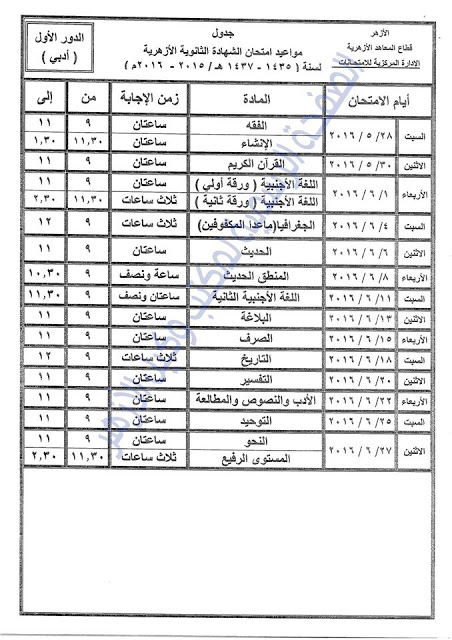 الأزهر
قطاع المعاهد الأزهرية
الادارة المركزية للامتحانات
جدول
مواعيد امتحان الشهادة الثانوية الأزهرية
لسنة ( ١٤٣٥ - ١٤٣٧ هـ / ٢٠١٥ - ٢٠١٦م )
الدور الأول
( أدبي )
أيام الامتحان المادة زمن الإجابة من إلى
السبت ٢٨ / ٥ / ٢٠١٦ الفقه ساعتان ٩ ١١
الإنشاء ساعتان ١١,٣٠ ١,٣٠
الاثنين ٣٠ / ٥ / ٢٠١٦ القرآن الكريم ساعتان ٩ ١١
الأربعاء ١ / ٦ / ٢٠١٦ اللغة الأجنبية ( ورقة أولي ) ساعتان ٩ ١١
اللغة الأجنبية ( ورقة ثانية ) ثلاث ساعات ١١,٣٠ ٢,٣٠
السبت ٤ / ٦ / ٢٠١٦ الجغرافيا(ماعدا المكفوفين) ثلاث ساعات ٩ ١٢
الاثنين ٦ / ٦ / ٢٠١٦ الحديث ساعتان ٩ ١١
الأربعاء ٨ / ٦ / ٢٠١٦ المنطق الحديث ساعة ونصف ٩ ١٠,٣٠
السبت ١١ / ٦ / ٢٠١٦ اللغة الأجنبية الثانية ساعتان ونصف ٩ ١١,٣٠
الاثنين ١٣ / ٦ / ٢٠١٦ البلاغة ساعتان ٩ ١١
الأربعاء ١٥ / ٦ / ٢٠١٦ الصرف ساعتان ٩ ١١
السبت ١٨ / ٦ / ٢٠١٦ التاريخ ثلاث ساعات ٩ ١٢
الاثنين ٢٠ / ٦ / ٢٠١٦ التفسير ساعتان ٩ ١١
الأربعاء ٢٢ / ٦ / ٢٠١٦ الأدب والنصوص والمطالعة ساعتان ٩ ١١
السبت ٢٥ / ٦ / ٢٠١٦ التوحيد ساعتان ٩ ١١
الاثنين ٢٧ / ٦ / ٢٠١٦ النحو ساعتان ٩ ١١
المستوى الرفيع ثلاث ساعات ١١,٣٠ ٢,٣٠